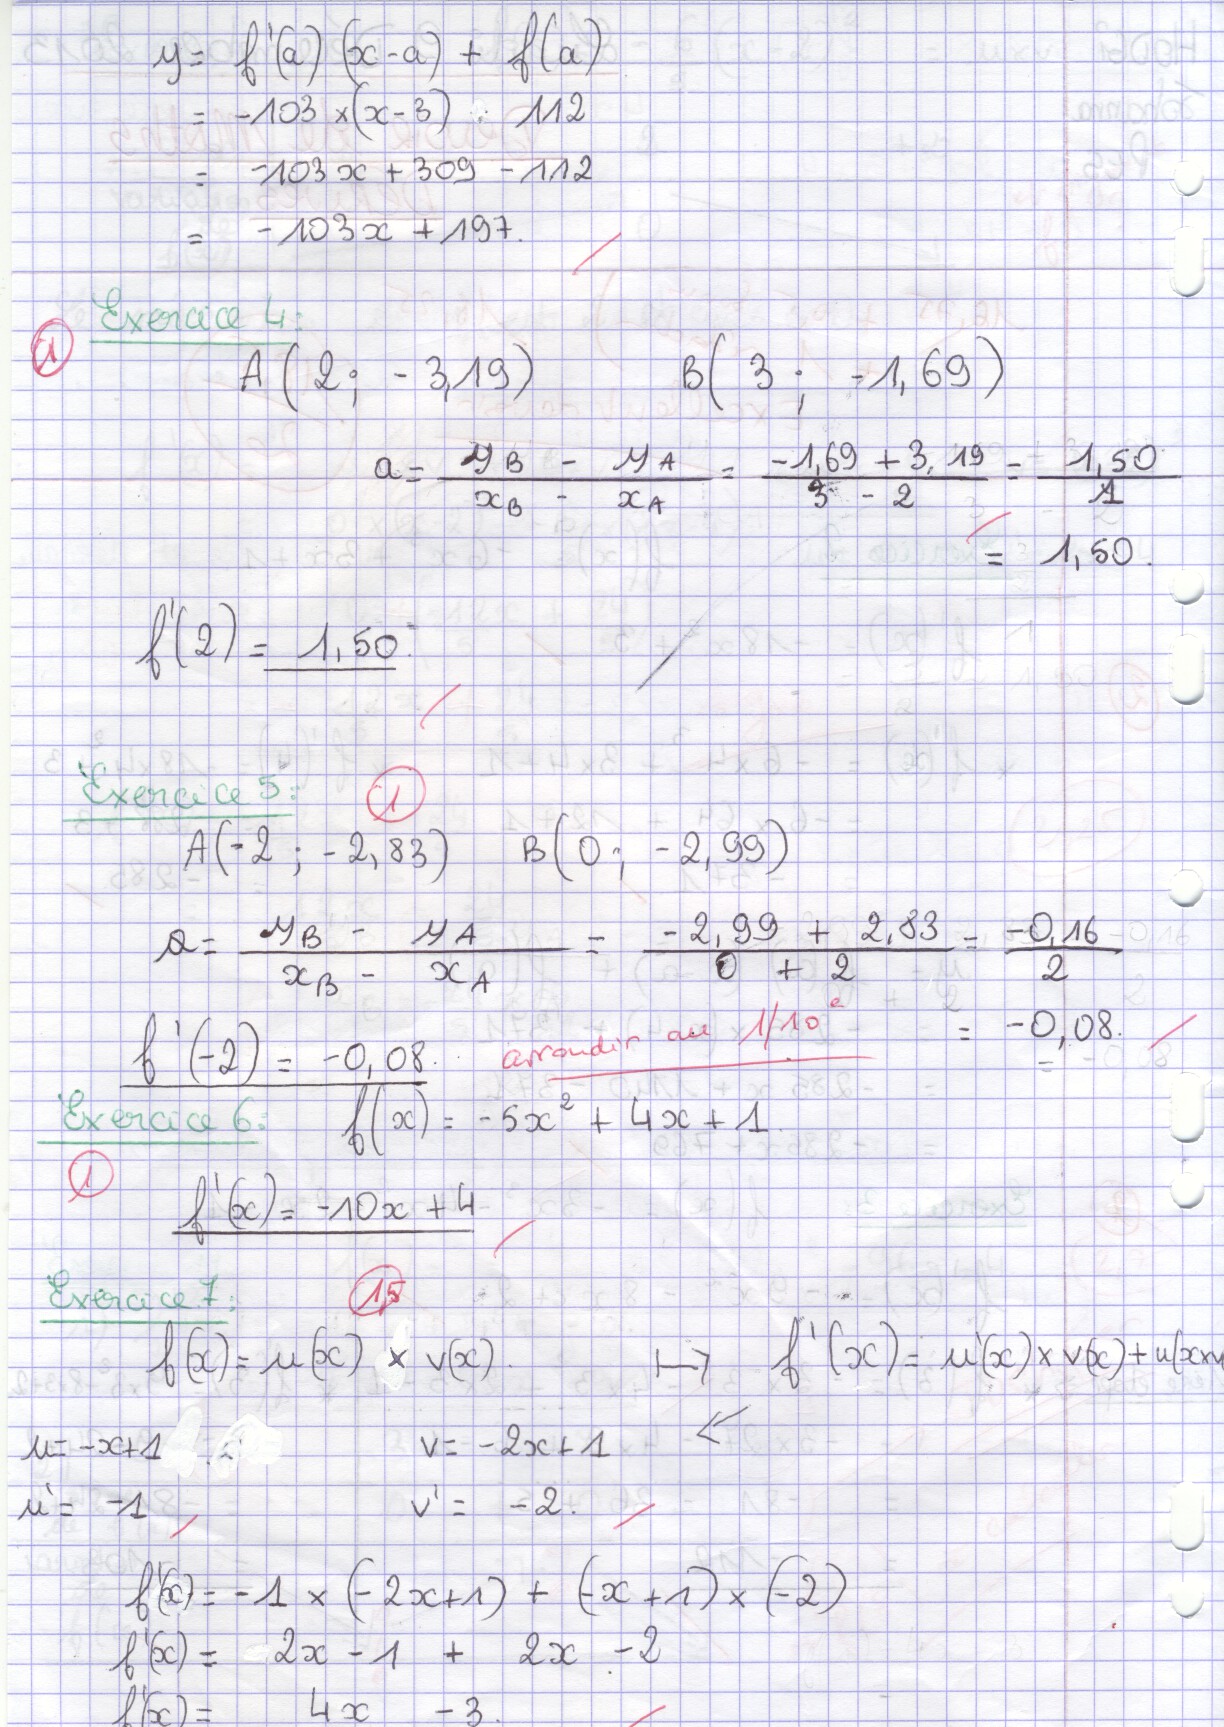 y = f'(a) (x-a) + f(a)
= -103 × (x-3) - 112
= -103x + 309 - 112
= -103x + 197.
Exercice 4:
1
A(2; -3,19) B(3; -1,69)
a = (yB - yA)/(xB - xA) = (-1,69 + 3,19)/(3 - 2) = 1,50/1
= 1,50.
f'(2) = 1,50
Exercice 5:
1
A(-2; -2,83) B(0; -2,99)
a = (yB - yA)/(xB - xA) = (-2,99 + 2,83)/(0 + 2) = -0,16/2
= -0,08.
f'(-2) = -0,08. arrondir au 1/10e
Exercice 6: f(x) = -5x² + 4x + 1
1
f'(x) = -10x + 4
Exercice 7:
1,5
f(x) = u(x) × v(x). ↦ f'(x) = u'(x) × v(x) + u(x × v
u = -x+1 v = -2x+1
u' = -1 v' = -2.
f'(x) = -1 × (-2x+1) + (-x+1) × (-2)
f'(x) = 2x - 1 + 2x - 2
f'(x) = 4x - 3.